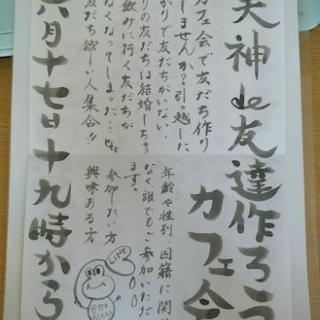 天神de友達作ろう
カフェ会
カフェ会で友だち作り
しませんか?引っ越した
ばかりで友だちがいない、
りの友だちは結婚しちゃ
飲みに行く友だちが
なくなってしまった…etc
友だち欲しい人集合!!
年齢や性別、国籍に関
なく誰でもご参加いただ
ます。
参加したい方
興味ある方
LINE
六月十七日十九時から